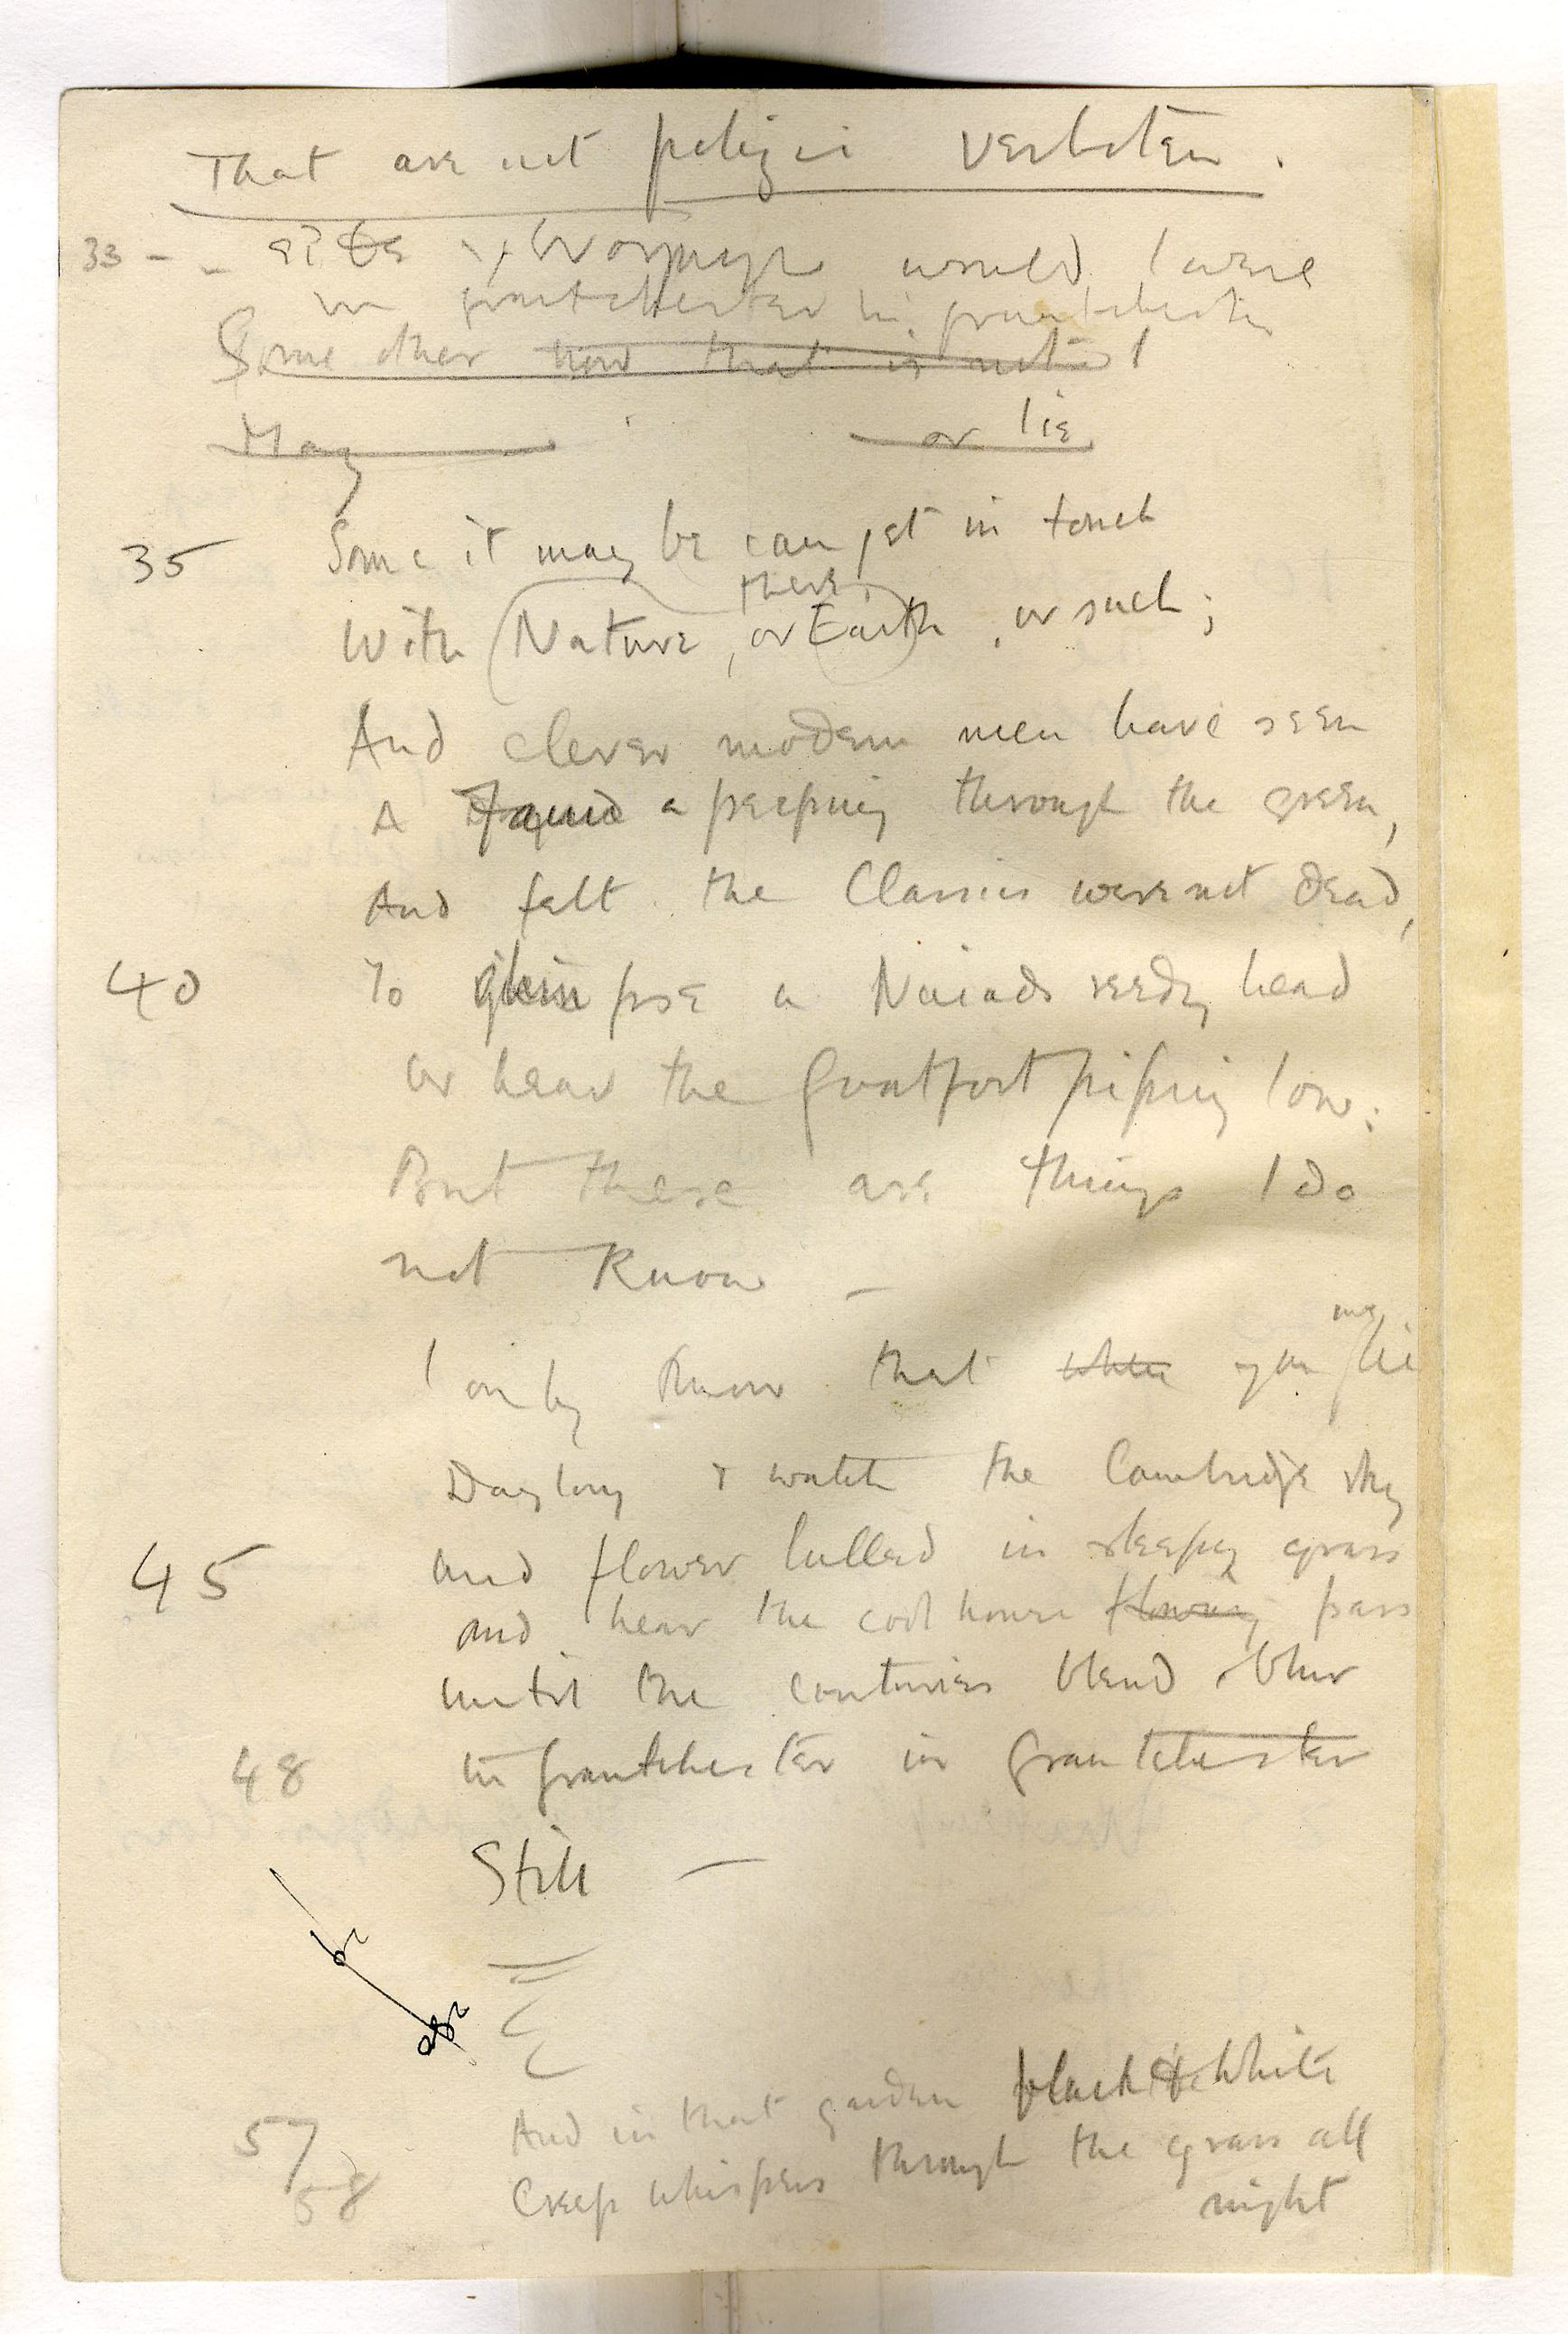 That are not polizei verboten.
33 - - εἴθε γενοίμην would I were
in grantchester in grantchester
Some other how that is not I
May or lie
35 Some it may be can get in touch
there
With Nature, or Earth, or such;
And clever modern men have seen
A Faun a peeping through the green,
And felt the Classics were not dead,
40 To glimpse a Naiads reedy head
or hear the Goatfoot piping low:
But these are things I do
not know —
may
I only know that while you lie
Daylong & watch the Cambridge sky
45 and flower lulled in sleepy grass
and hear the cool hours flowing pass
until the centuries blend & blur
48 in Grantchester in Grantchester
Still —
57 And in that garden black & white
58 Creep whispers through the grass all
night